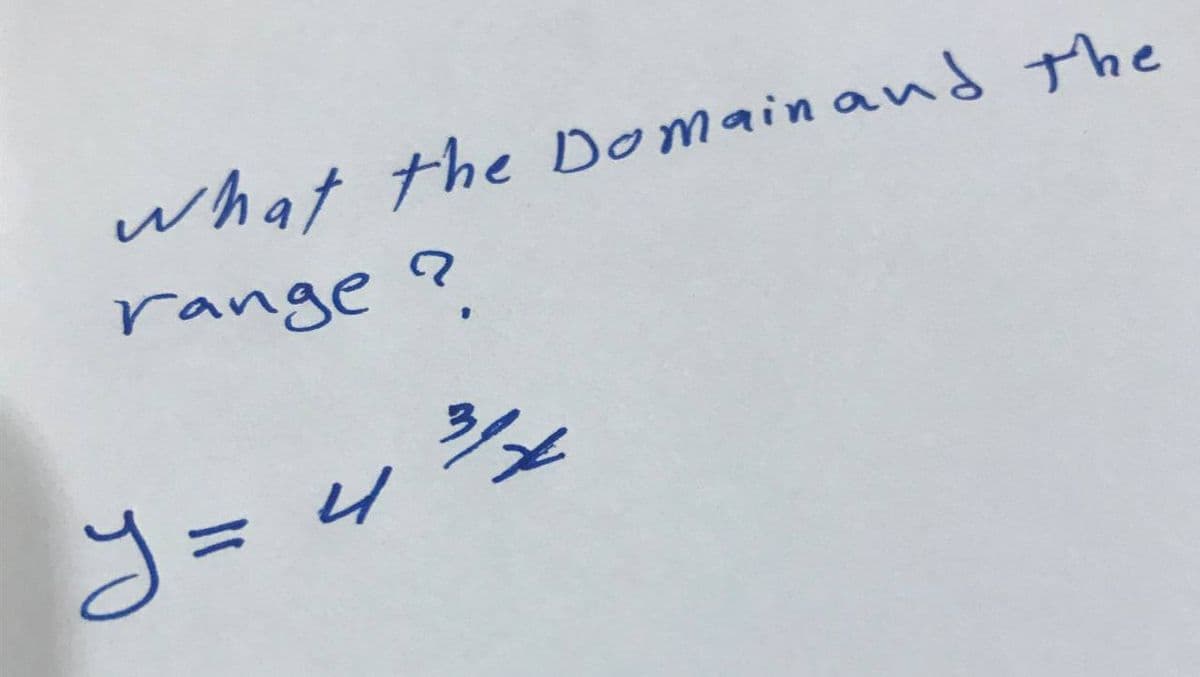 what the Domain and the
range ?
y = 4 ^3/x